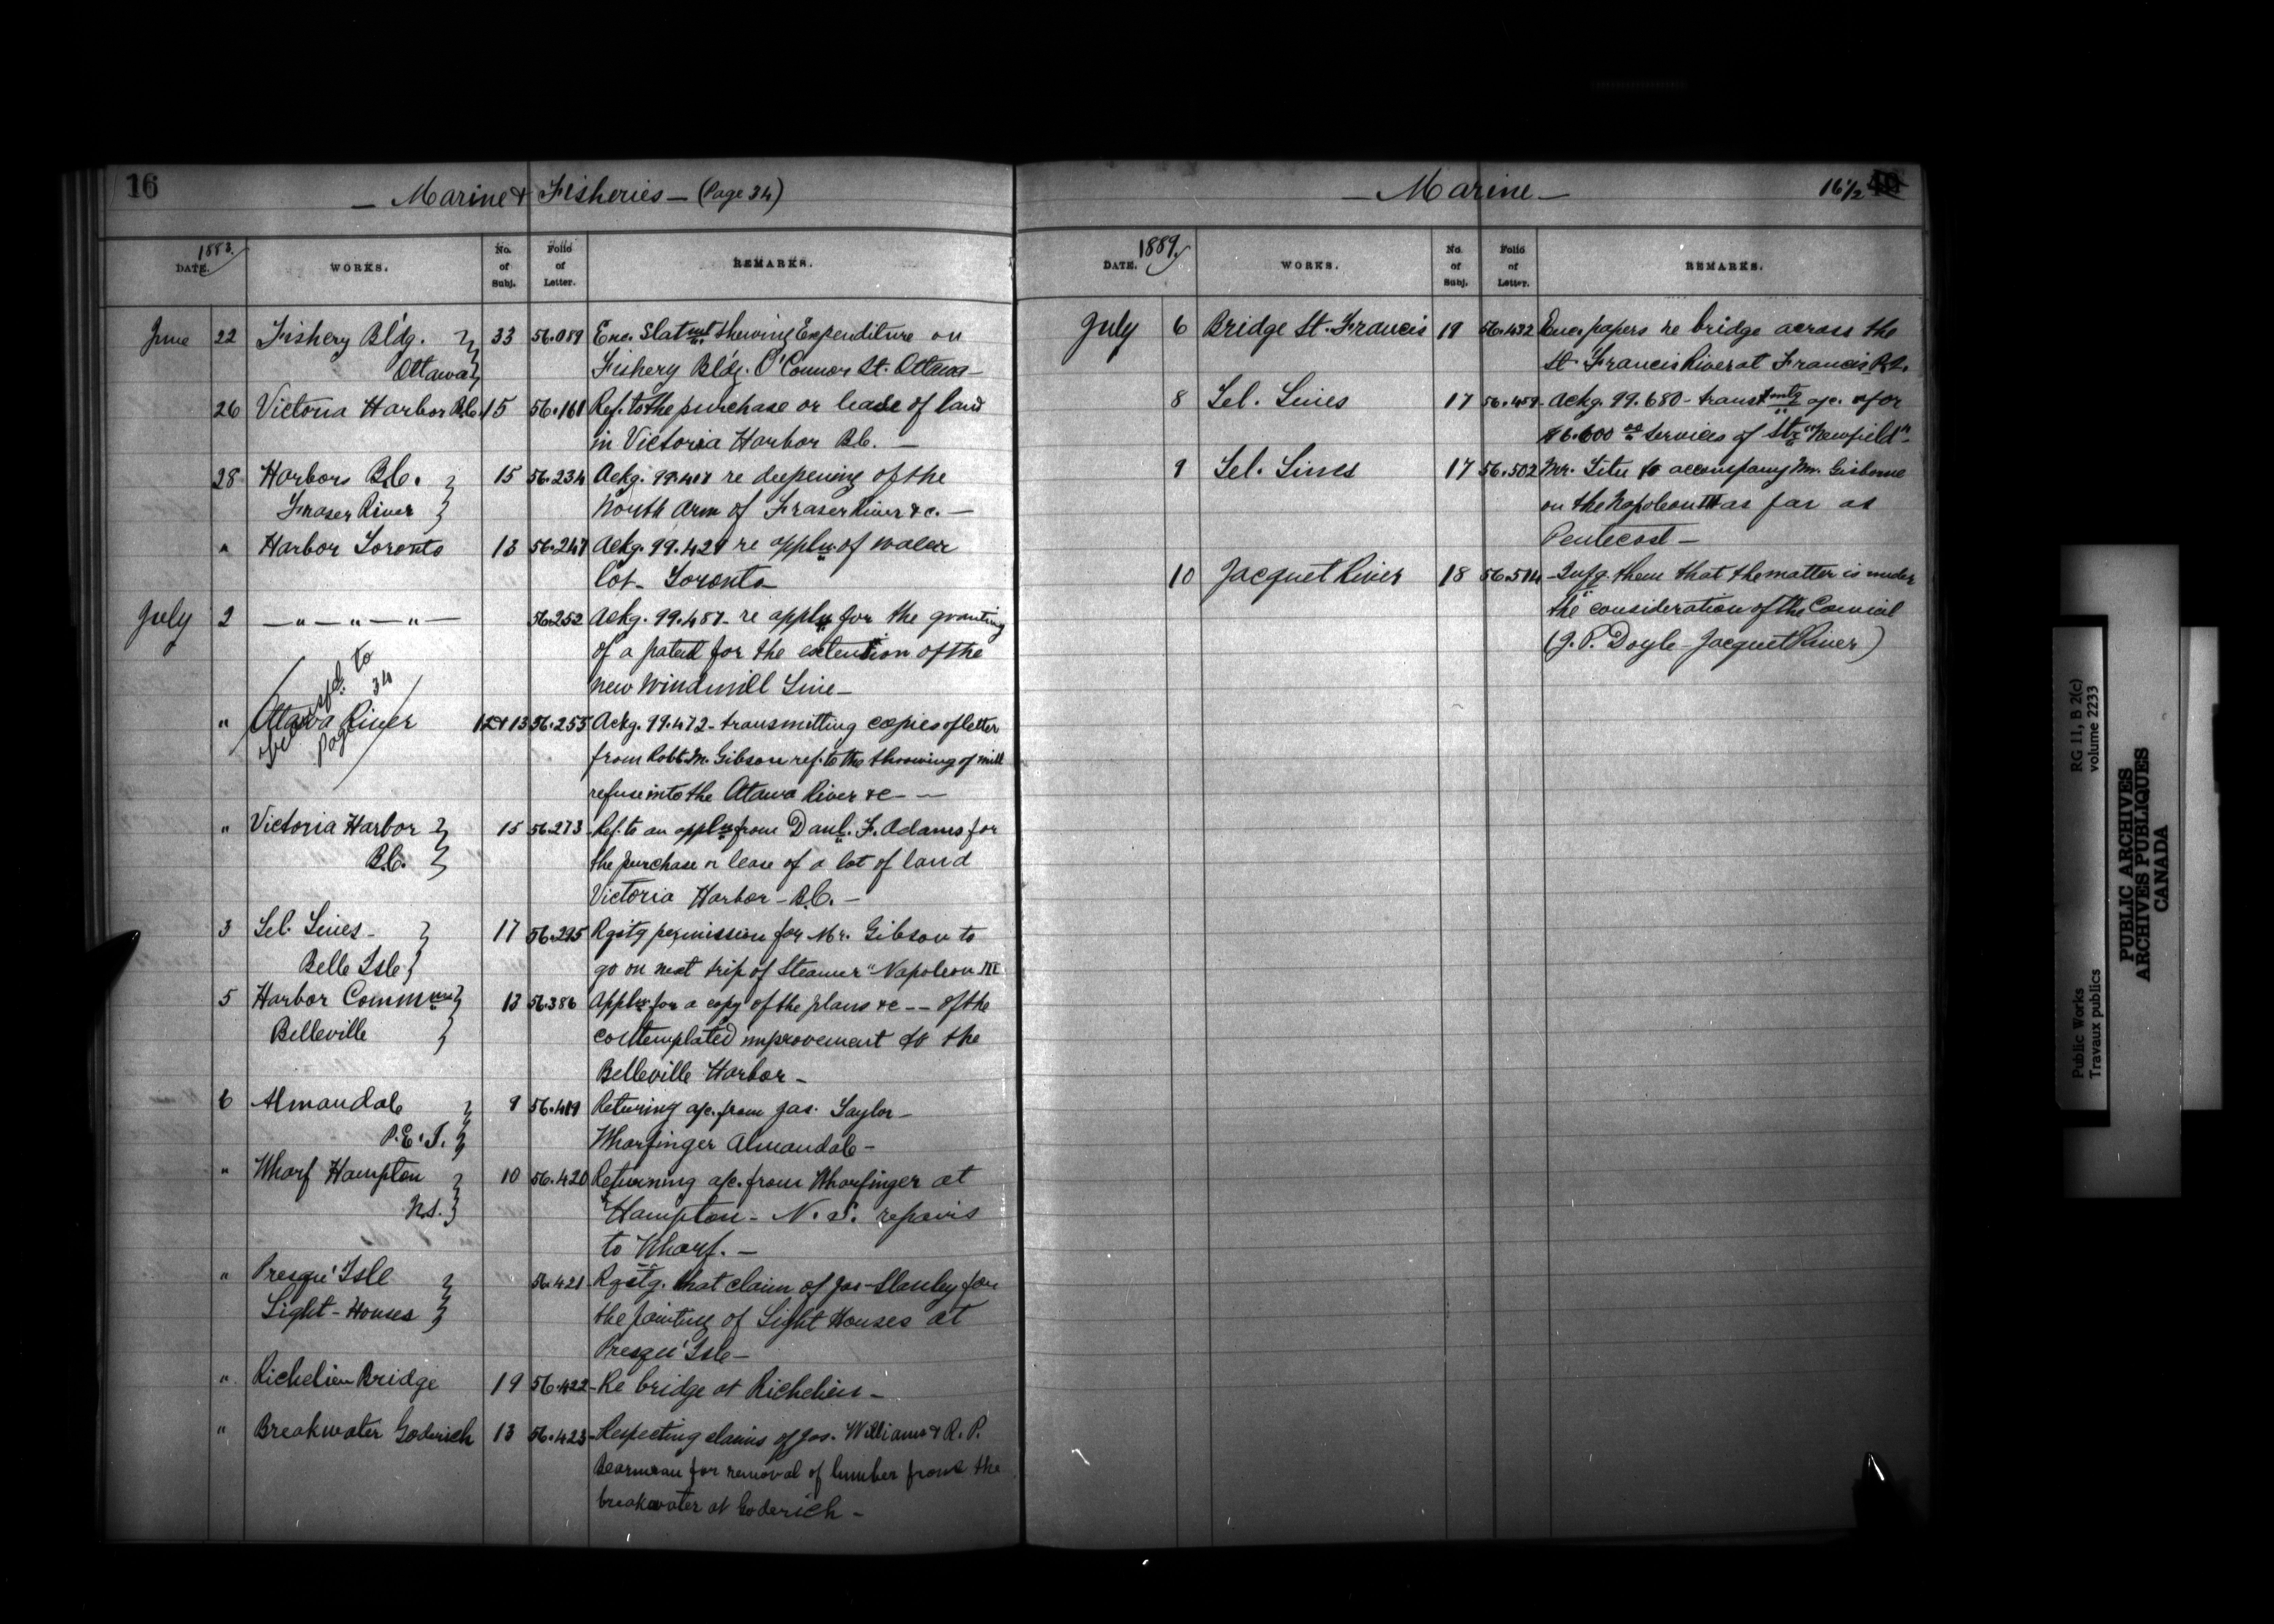 16
— Marine & Fisheries — (Page 34)
1883.
DATE.
WORKS.
No. of Subj.
Folio of Letter.
REMARKS.
June 22 Fishery Bl'dg. 33 56.089 Enc. Statmt. shewing Expenditure on
Ottawa Fishery Bl'dg. O'Connor St. Ottawa —
26 Victoria Harbor B.C. 15 56.161 Ref. to the purchase or lease of land
in Victoria Harbor B.C. —
28 Harbors B.C. 15 56.234 Ackg. 99.417 re deepening of the
Fraser River North Arm of Fraser River &c. —
" Harbor Toronto 13 56.247 Ackg. 99.429 re appln. of water
lot — Toronto —
July 2 — " — " — " — 56.252 Ackg. 99.451 — re appln for the granting
of a patent for the extension of the
new Windmill Line —
Transfd. to
page 34
" Ottawa River 13 56.255 Ackg. 99.472 — transmitting copies of letter
from Robt. M. Gibson ref. to the throwing of mill
refuse into the Otawa River &c — —
" Victoria Harbor 15 56.273 — Ref. to an appln from Danl. F. Adams for
B.C. the purchase or lease of a lot of land
Victoria Harbor — B.C. —
3 Tel. Lines — 17 56.295 Rqstg permission for Mr. Gibson to
Belle Isle go on next trip of Steamer "Napoleon III
5 Harbor Commnrs 13 56.386 Appln for a copy of the plans &c — — of the
Belleville contemplated improvement to the
Belleville Harbor —
6 Almandale 9 56.419 Returing a/c. from Jas. Taylor —
P.E.I. Wharfinger Almandale —
" Wharf Hampton 10 56.420 Returning a/c. from Wharfinger at
N.S. Hampton — N.S. repairs
to Wharf. —
" Presqu' Isle 56.421 — Rqstg. that claim of Jas. Stanley for
Light - Houses the painting of Light Houses at
Presqu' Isle —
" Richelieu Bridge 19 56.422 — Re bridge at Richelieu —
" Breakwater Goderich 13 56.423 — Respecting claims of Jas. Williams & R.P.
for removal of lumber from the
breakwater at Goderich —
— Marine —
16½
1889.
DATE.
WORKS.
No. of Subj.
Folio of Letter.
REMARKS.
July 6 Bridge St. Francis 19 56.432 Enc. papers re bridge across the
St. Francis River at Francis
8 Tel. Lines 17 56.459 — Ackg. 99.680 — a/c. for
$6.600 00 services of Str "Newfield" —
9 Tel. Lines 17 56.502 Mr. to accompany Mr. Gisborne
on the Napoleon III as far as
Pentecost —
10 Jacquet River 18 56.514 — Infg. them that the matter is under
the consideration of the Council
(J.P. Doyle — Jacquet River)
RG 11, B 2(c)
volume 2233
Public Works
Travaux publics
PUBLIC ARCHIVES
ARCHIVES PUBLIQUES
CANADA